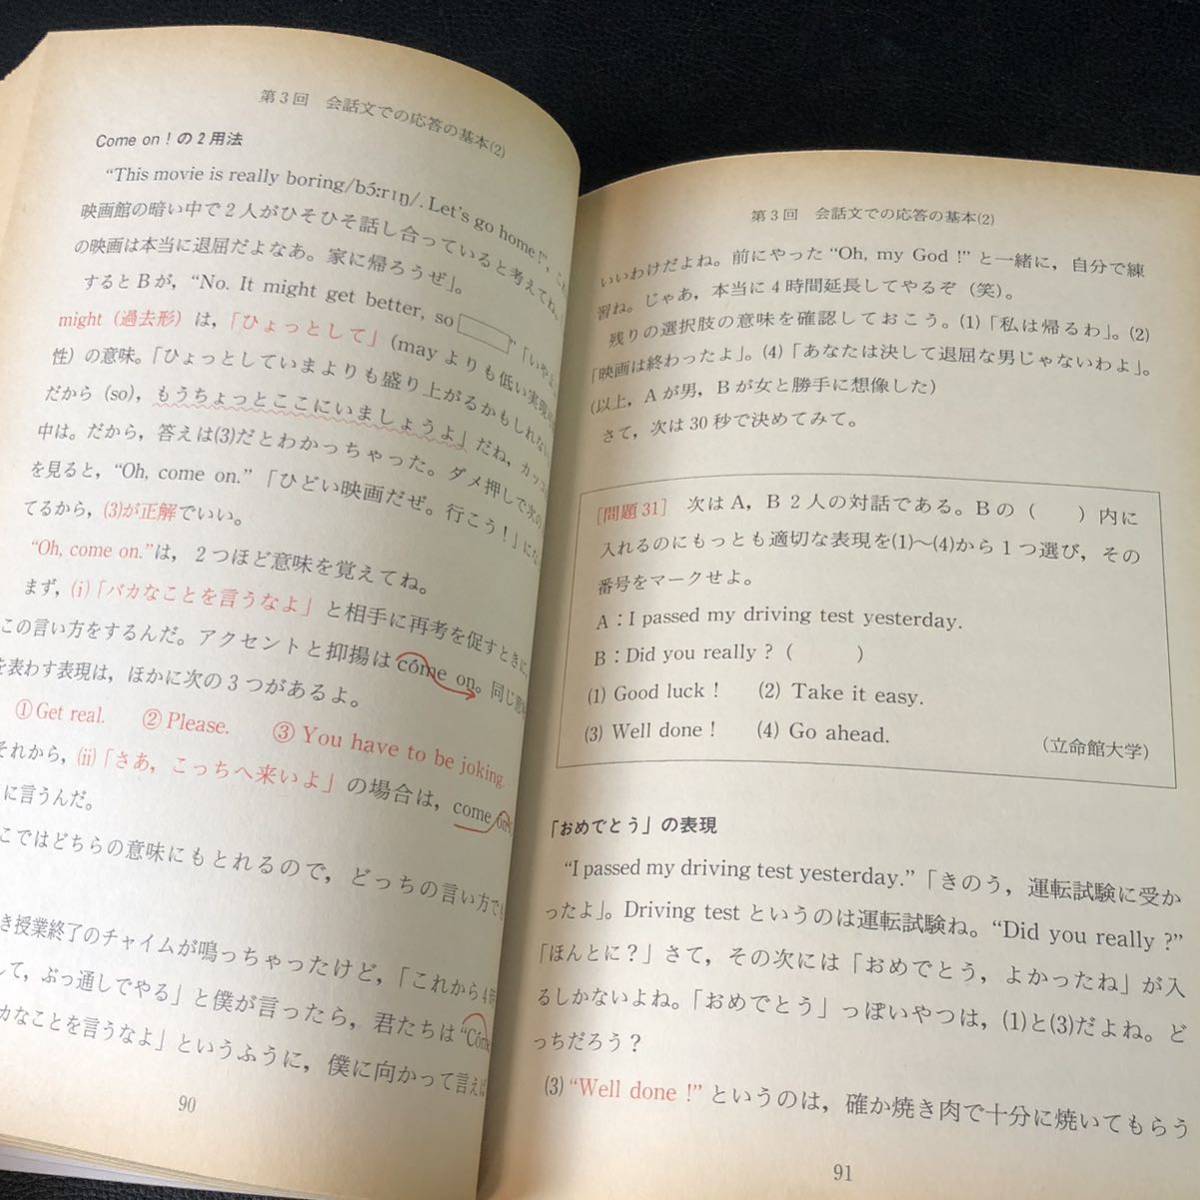 第3回 会話文での応答の基本(2)
Come on!の2用法
“This movie is really boring/bɔ́:rɪŋ/. Let's go home!”, こ
映画館の暗い中で2人がひそひそ話し合っていると考えてね。
の映画は本当に退屈だよなあ。家に帰ろうぜ」。
するとBが，“No. It might get better, so
”「いや
might (過去形) は，「ひょっとして」(mayよりも低い実現
性) の意味。「ひょっとしていまよりも盛り上がるかもしれない
だから (so)，もうちょっとここにいましょうよ」だね，カッコ
中は。だから，答えは(3)だとわかっちゃった。ダメ押しで次の
を見ると，“Oh, come on.”「ひどい映画だぜ。行こう！」にな
てるから，(3)が正解でいい。
“Oh, come on.”は，2つほど意味を覚えてね。
まず，(i)「バカなことを言うなよ」と相手に再考を促すときに，
この言い方をするんだ。アクセントと抑揚はcóme on。同じ意
を表わす表現は，ほかに次の3つがあるよ。
①Get real. ②Please. ③You have to be joking.
それから，(ii)「さあ，こっちへ来いよ」の場合は，come on
に言うんだ。
こではどちらの意味にもとれるので，どっちの言い方で
き授業終了のチャイムが鳴っちゃったけど，「これから4時
して，ぶっ通しでやる」と僕が言ったら，君たちは“Cóme
カなことを言うなよ」というふうに，僕に向かって言えば
90
第3回 会話文での応答の基本(2)
いいわけだよね。前にやった“Oh, my God!”と一緒に，自分で練
習ね。じゃあ，本当に4時間延長してやるぞ（笑）。
残りの選択肢の意味を確認しておこう。(1)「私は帰るわ」。(2)
「映画は終わったよ」。(4)「あなたは決して退屈な男じゃないわよ」。
(以上，Aが男，Bが女と勝手に想像した)
さて，次は30秒で決めてみて。
[問題31] 次はA，B 2人の対話である。Bの（ ）内に
入れるのにもっとも適切な表現を(1)〜(4)から1つ選び，その
番号をマークせよ。
A：I passed my driving test yesterday.
B：Did you really?（ ）
(1) Good luck! (2) Take it easy.
(3) Well done! (4) Go ahead.
（立命館大学）
「おめでとう」の表現
“I passed my driving test yesterday.”「きのう，運転試験に受か
ったよ」。Driving testというのは運転試験ね。“Did you really?”
「ほんとに？」さて，その次には「おめでとう，よかったね」が入
るしかないよね。「おめでとう」っぽいやつは，(1)と(3)だよね。ど
っちだろう？
(3)“Well done!”というのは，確か焼き肉で十分に焼いてもらう
91